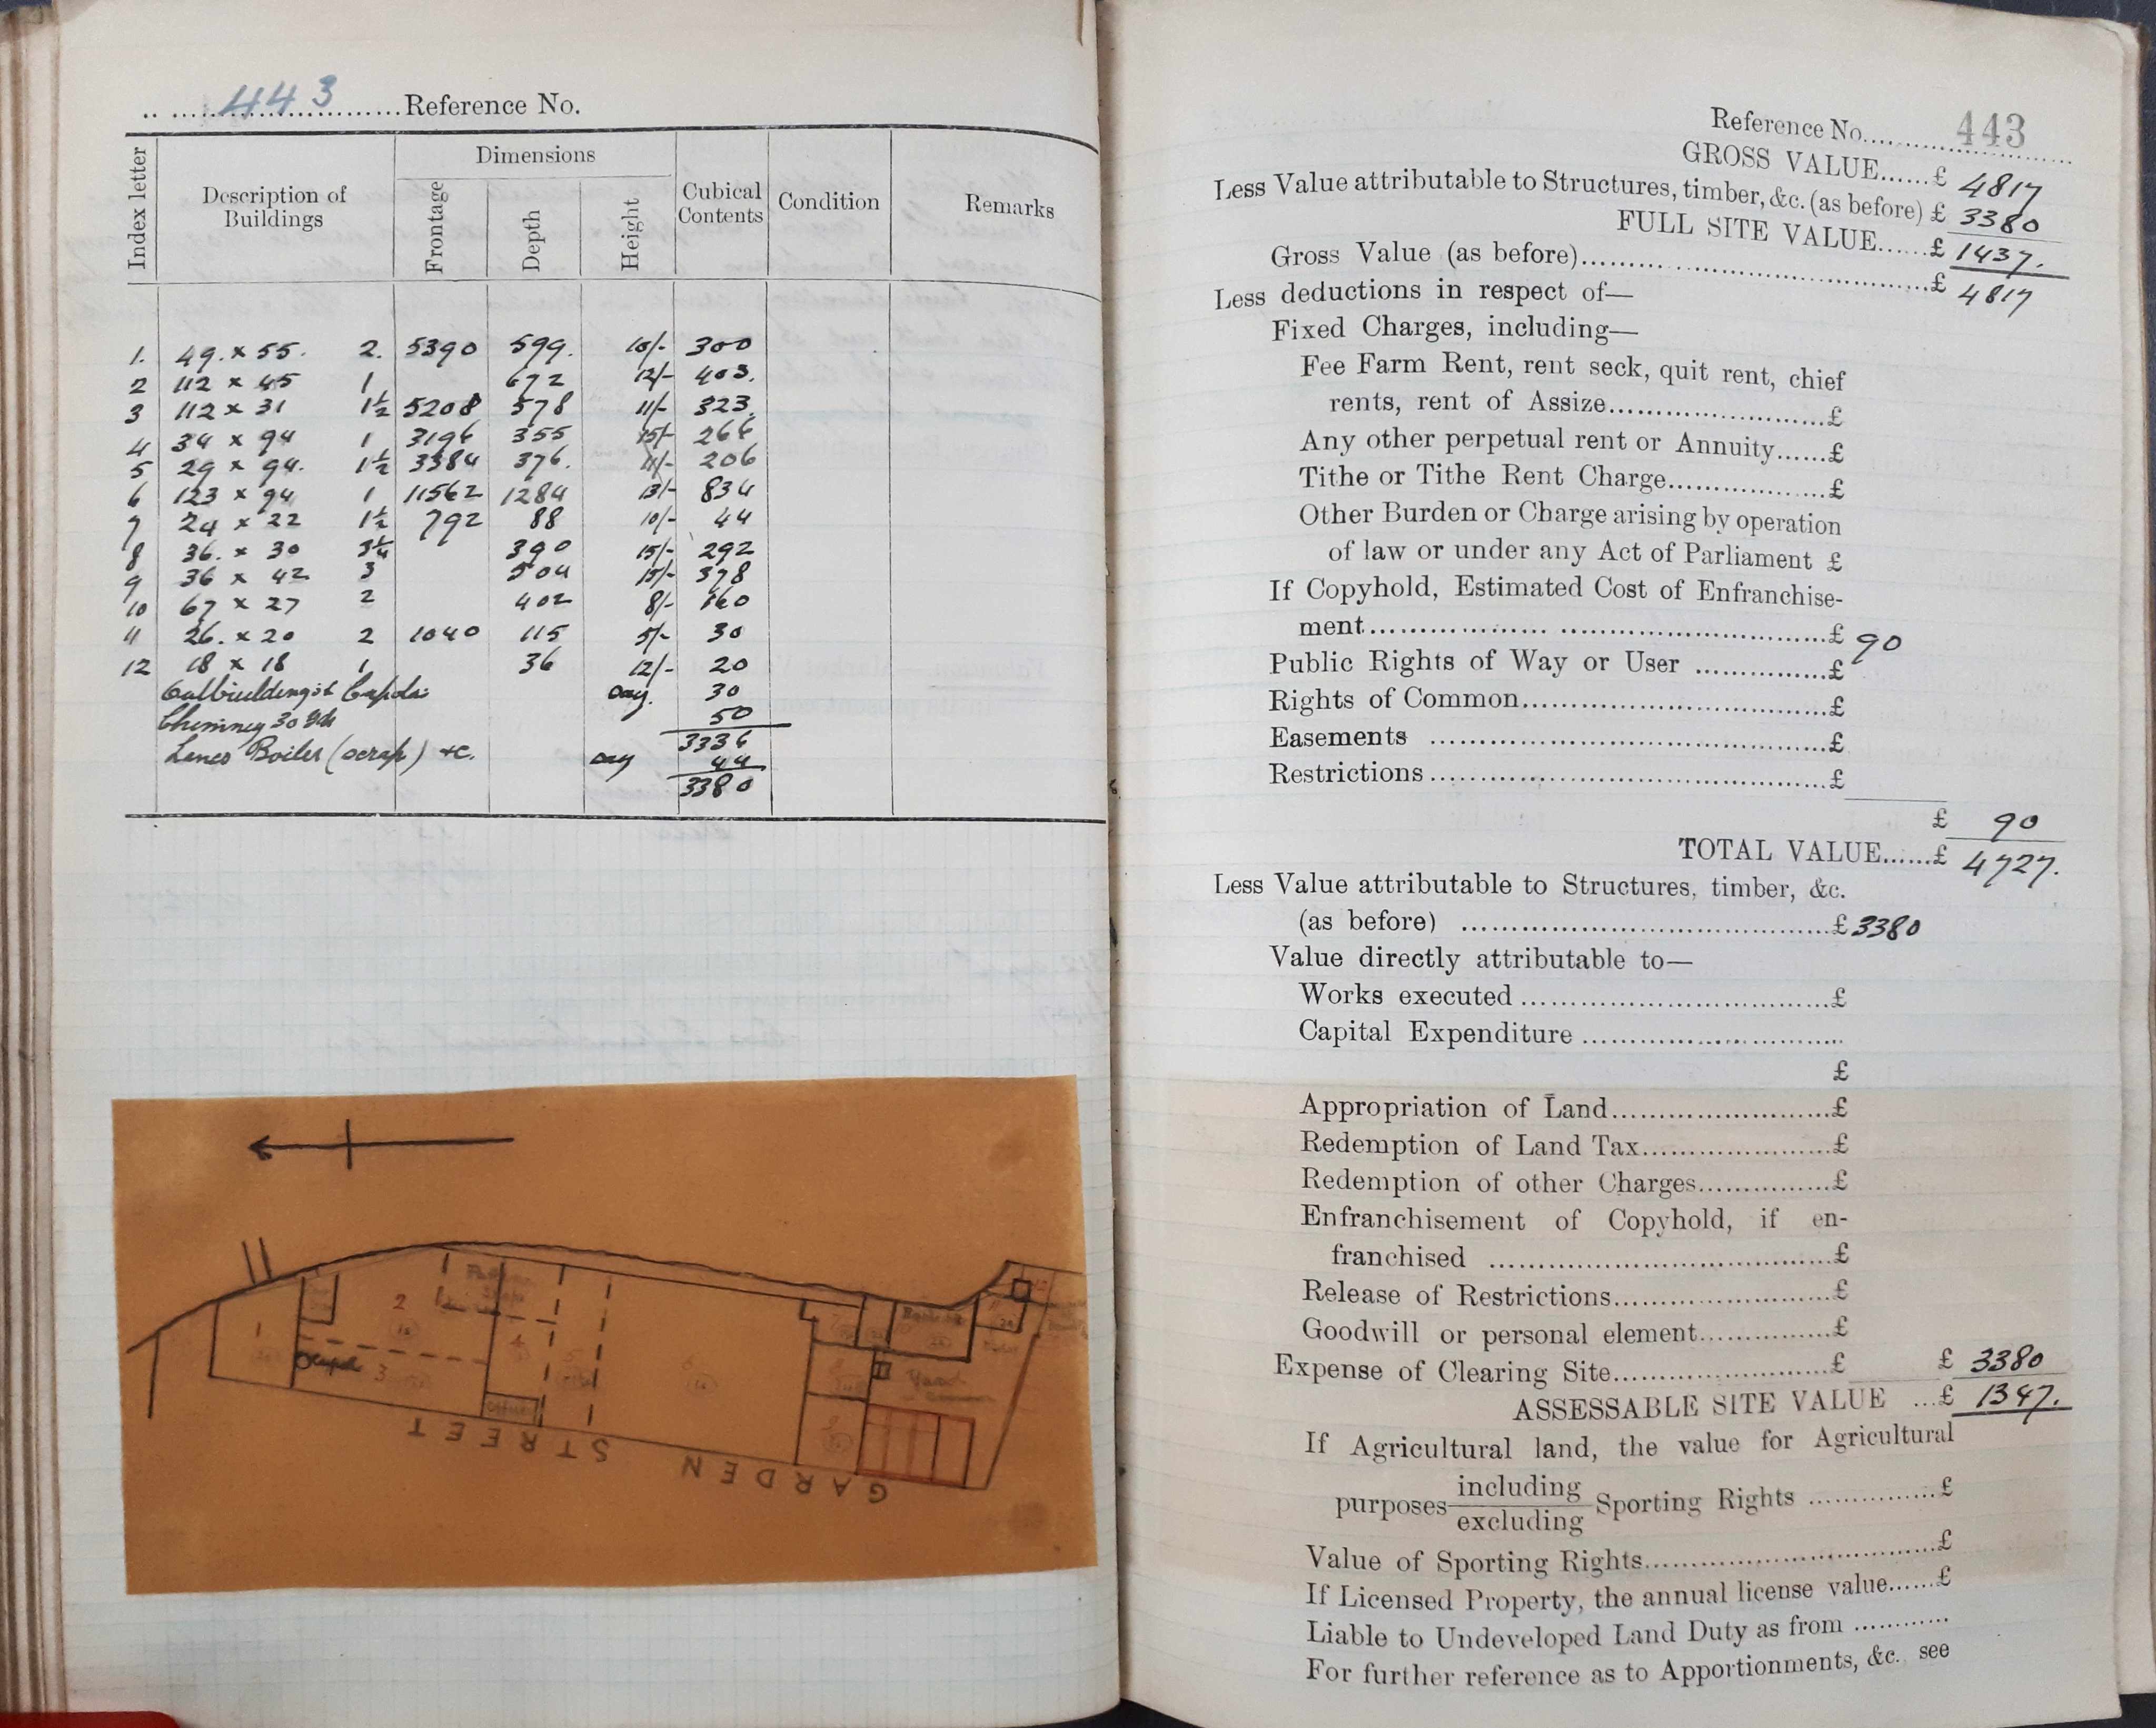 443 Reference No.
Index letter
Description of Buildings
Dimensions
Frontage
Depth
Height
Cubical Contents
Condition
Remarks
1. 49. x 55. 2. 5390 599. 10/- 300
2 112 x 45 1 672 12/- 403.
3 112 x 31 1½ 5208 578 11/- 323.
4 34 x 94 1 3196 355 15/- 266
5 29 x 94. 1½ 3384 376. 11/- 206
6 123 x 94 1 11562 1284 13/- 834
7 24 x 22 1½ 792 88 10/- 44
8 36. x 30 3¼ 390 15/- 292
9 36 x 42 3 504 15/- 378
10 67 x 27 2 402 8/- 160
11 26. x 20 2 1040 115 5/- 30
12 18 x 18 1 36 12/- 20
Outbuildings & say. 30
Chimney 30 yds 50
3336
Lancs Boiler (scrap) &c. say 44
3380
1
2
3
4
5
6
Office
Yard
GARDEN STREET
Reference No. 443
GROSS VALUE......£ 4817
Less Value attributable to Structures, timber, &c. (as before) £ 3380
FULL SITE VALUE......£ 1437.
Gross Value (as before)......£ 4817
Less deductions in respect of—
Fixed Charges, including—
Fee Farm Rent, rent seck, quit rent, chief
rents, rent of Assize......£
Any other perpetual rent or Annuity......£
Tithe or Tithe Rent Charge......£
Other Burden or Charge arising by operation
of law or under any Act of Parliament £
If Copyhold, Estimated Cost of Enfranchise-
ment......£ 90
Public Rights of Way or User ......£
Rights of Common......£
Easements ......£
Restrictions......£
£ 90
TOTAL VALUE......£ 4727.
Less Value attributable to Structures, timber, &c.
(as before) ......£ 3380
Value directly attributable to—
Works executed ......£
Capital Expenditure ......
£
Appropriation of Land......£
Redemption of Land Tax......£
Redemption of other Charges......£
Enfranchisement of Copyhold, if en-
franchised ......£
Release of Restrictions......£
Goodwill or personal element......£
Expense of Clearing Site......£ £ 3380
ASSESSABLE SITE VALUE ...£ 1347.
If Agricultural land, the value for Agricultural
purposes including
excluding Sporting Rights ......£
Value of Sporting Rights......£
If Licensed Property, the annual license value......£
Liable to Undeveloped Land Duty as from ......
For further reference as to Apportionments, &c. see